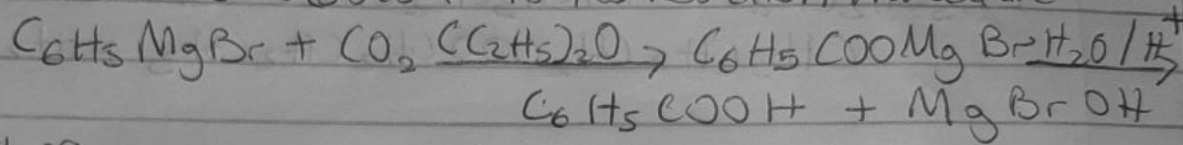 C6H5 MgBr + CO2 (C2H5)2O → C6H5 COOMg Br H2O/H+ →
C6H5 COOH + MgBrOH